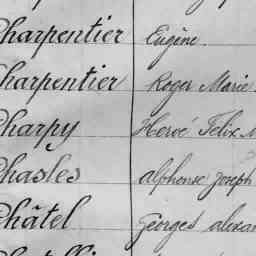 Charpentier Eugène.
Charpentier Roger Marie
Charpy Hervé Félix
Chasles alphonse Joseph
Châtel Georges